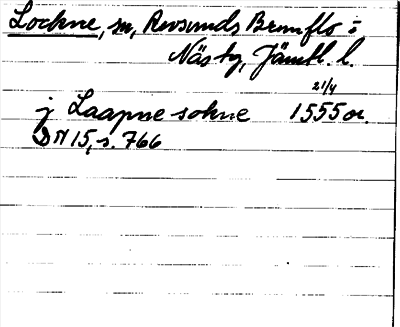 Lockne, sn, Revsunds Brunflo o
Näs tg, Jämtl. l.
21/4
j Laapne sokne 1555 or.
DN 15, s. 766